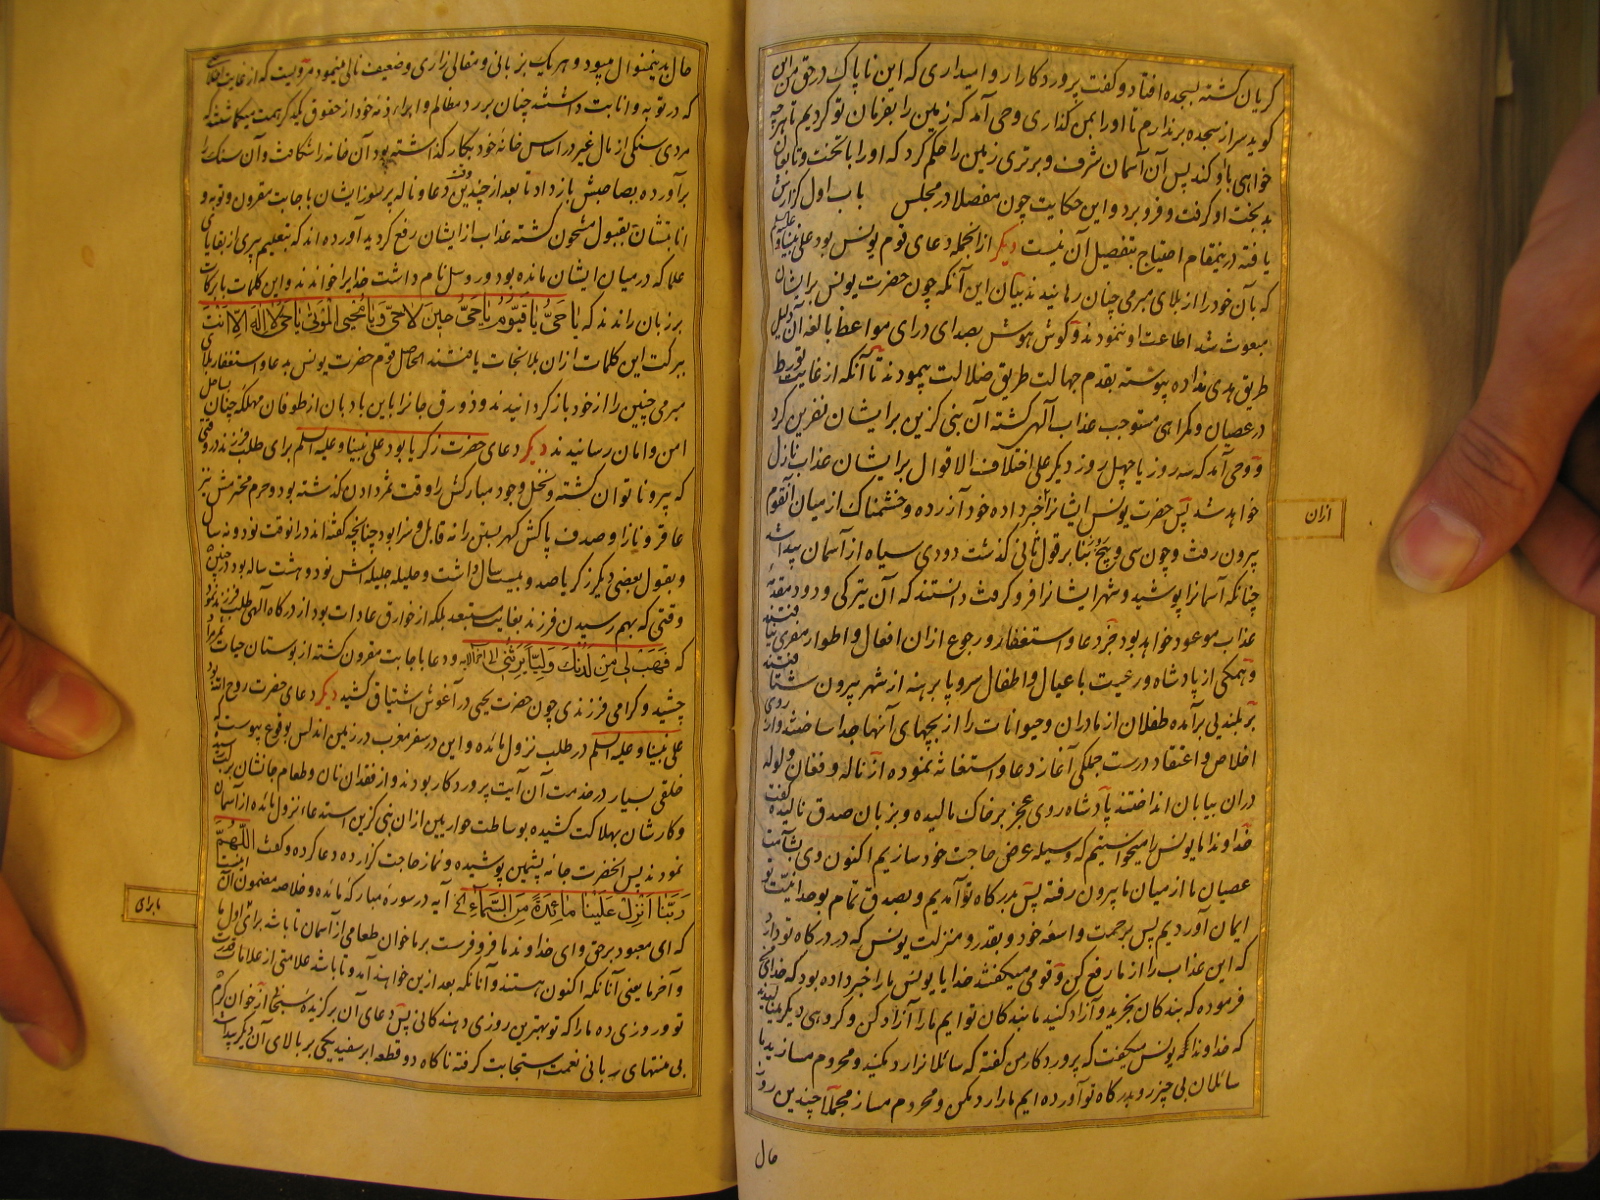 گریان گشته بسجده افتاد و گفت پروردگارا روا میداری که این ناپاک در حق من این
گوید سر از سجده برندارم تا او را بمن گذاری وحی آمد که زمین را بفرمان تو کردیم تا هر چه
خواهی با او کند پس آن آسمان شرف و برتری زمین را حکم کرد که او را با تخت و تابعان
بدبخت او گرفت و فرو برد و این حکایت چون مفصلا در مجلس باب اول گزارش
یافته درینمقام احتیاج بتفصیل آن نیست دیگر از انجمله دعای قوم یونس بود علی نبینا و علیه السلم
که بآن خود را از بلای مبرمی چنان رهانیدند بیان این آنکه چون حضرت یونس بر ایشان
مبعوث شد اطاعت او ننمودند و گوش هوش بصدای درای مواعظ بالغه آن دلیل
طریق هدی نداده پیوسته بقدم جهالت طریق ضلالت پیمودند تا آنکه از غایت تورط
در عصیان و گمراهی مستوجب عذاب آلهی گشته آن نبی گزین بر ایشان نفرین کرد
و وحی آمد که سه روز یا چهل روز دیگر علی اختلاف الاقوال بر ایشان عذاب نازل
خواهد شد پس حضرت یونس ایشانرا خبر داده خود آزرده و خشمناک از میان آنقوم
بیرون رفت و چون سی و پنج روز بنا بر قول ثانی گذشت دودی سیاه از آسمان پیدا شد
چنانکه آسمانرا پوشید و شهر ایشانرا فرو گرفت دانستند که آن تیرگی و دود مقدمهٔ
عذاب موعود خواهد بود جز دعا و استغفار و رجوع از ان افعال و اطوار مفری نیافتند
و همگی از پادشاه و رعیت با عیال و اطفال سر و پا برهنه از شهر بیرون شتافتند
بر بلندیی برآمده طفلان از مادران و حیوانات را از بچهای آنها جدا ساختند و از روی
اخلاص و اعتقاد درست جملگی آغاز دعا و استغاثه نموده از ناله و فغان ولوله
دران بیابان انداختند پادشاه روی عجز بر خاک مالیده و بزبان صدق نالیده گفت
خداوندا ما یونس را میخواستیم که وسیله عرض حاجت خود سازیم اکنون وی بشآمت
عصیان ما از میان ما بیرون رفته پس بدرگاه تو آمدیم و بصدق تمام بوحدانیت تو
ایمان آوردیم پس برحمت واسعهٔ خود و بقدر و منزلت یونس که در درگاه تو دارد
که این عذاب را از ما رفع کن و قومی میگفتند خدایا یونس ما را خبر داده بود که خدای
فرموده که بندگان بخرید و آزاد کنید ما بندگان توایم ما را آزاد کن و گروهی دیگر مینالیدند
که خداوندا یونس میگفت که پروردگار من گفته که سائلانرا رد مکنید و محروم مسازید ما
سائلان بی چیز رو بدرگاه تو آورده ایم ما را رد مکن و محروم مساز مجملا چندین روز
ازان
حال
حال بدینمنوال میبود و هر یک بزبانی و مقالی زاری و ضعیف نالی مینمود مرویست که از غایت اخلاصی
که در توبه و انابت داشتند چنان بر رد مظالم و ابراء ذمهٔ خود از حقوق یکدیگر همت میگماشتند که
مردی سنگی از مال غیر در اساس خانهٔ خود بکار گذاشته بود آن خانه را شکافت و آن سنگ را
برآورده بصاحبش باز داد تا بعد از چندین دعا و ناله پر سوز ایشان باجابت مقرون و توبه و
انابتشان بقبول مشحون گشته عذاب از ایشان رفع گردید آورده اند که بتعلیم پیری از بقایای
علما که در میان ایشان مانده بود و روسل نام داشت خدایرا خواندند و این کلمات بابرکات
بر زبان راندند که یا حَیُّ یا قَیُّومُ یا حَیُّ حینَ لا حَیَّ وَ یا مُحیِی المَوتی یا حَیُّ لا اِلهَ اِلّا اَنتَ
ببرکت این کلمات از ان بلا نجات یافتند الحاصل قوم حضرت یونس بدعا و استغفار بلای
مبرمی چنین را از خود باز گردانیدند و زورق جانرا باین بادبان از طوفان مهلکه چنان بساحل
امن و امان رسانیدند دیگر دعای حضرت زکریا بود علی نبینا و علیه السلم برای طلب فرزند در وقتی
که پیر و ناتوان گشته و نخل وجود مبارکش را وقت ثمر دادن گذشته بود و حرم محترمش نیز
عاقر و نازا و صدف پاکش گهر بستن را نه قابل و سزا بود چنانچه گفته اند در انوقت نود و نه سال
و بقول بعضی دیگر زکریا صد و بیست سال داشت و حلیله جلیله اش نود و هشت ساله بود در چنین
وقتی که بهم رسیدن فرزند بغایت مستبعد بلکه از خوارق عادات بود از درگاه آلهی طلب فرزند نمود
که فَهَب لی مِن لَدُنکَ وَلِیًّا یَرِثُنی الی آخر الآیه و دعا با اجابت مقرون گشته از بوستان حیات ثمر مراد
چشید و گرامی فرزندی چون حضرت یحیی در آغوش اشتیاق کشید دیگر دعای حضرت روح الله بود
علی نبینا و علیه السلم در طلب نزول مائده و این در سفر مغرب در زمین اندلس بوقوع پیوست که
خلقی بسیار در خدمت آن آیت پروردگار بودند و از فقدان نان و طعام جانشان بر لب رسیده
و کارشان بهلاکت کشیده بوساطت حواریین از ان نبی گزین استدعاء نزول مائده از آسمان
نمودند پس آنحضرت جامه پشمین پوشیده و نماز حاجت گزارده دعا کرده و گفت اَللّهُمَّ
رَبَّنا اَنزِل عَلَینا مائِدَةً مِنَ السَّماءِ الخ آیه در سورهٔ مبارکه مائده و خلاصه مضمون آن اینست
که ای معبود برحق و ای خداوند ما فرو فرست بر ما خوان طعامی از آسمان تا باشد برای اول ما
و آخر ما یعنی آنانکه اکنون هستند و آنانکه بعد ازین خواهند آمد و تا باشد علامتی از علامات قدرت
تو و روزی ده ما را که تو بهترین روزی دهندگانی پس دعای آن برگزیدهٔ سبحانی از خوان کرم
بی منتهای ربانی نعمت استجابت گرفته ناگاه دو قطعه ابر سفید یکی بر بالای آن دیگر پیدا شد
ما برای